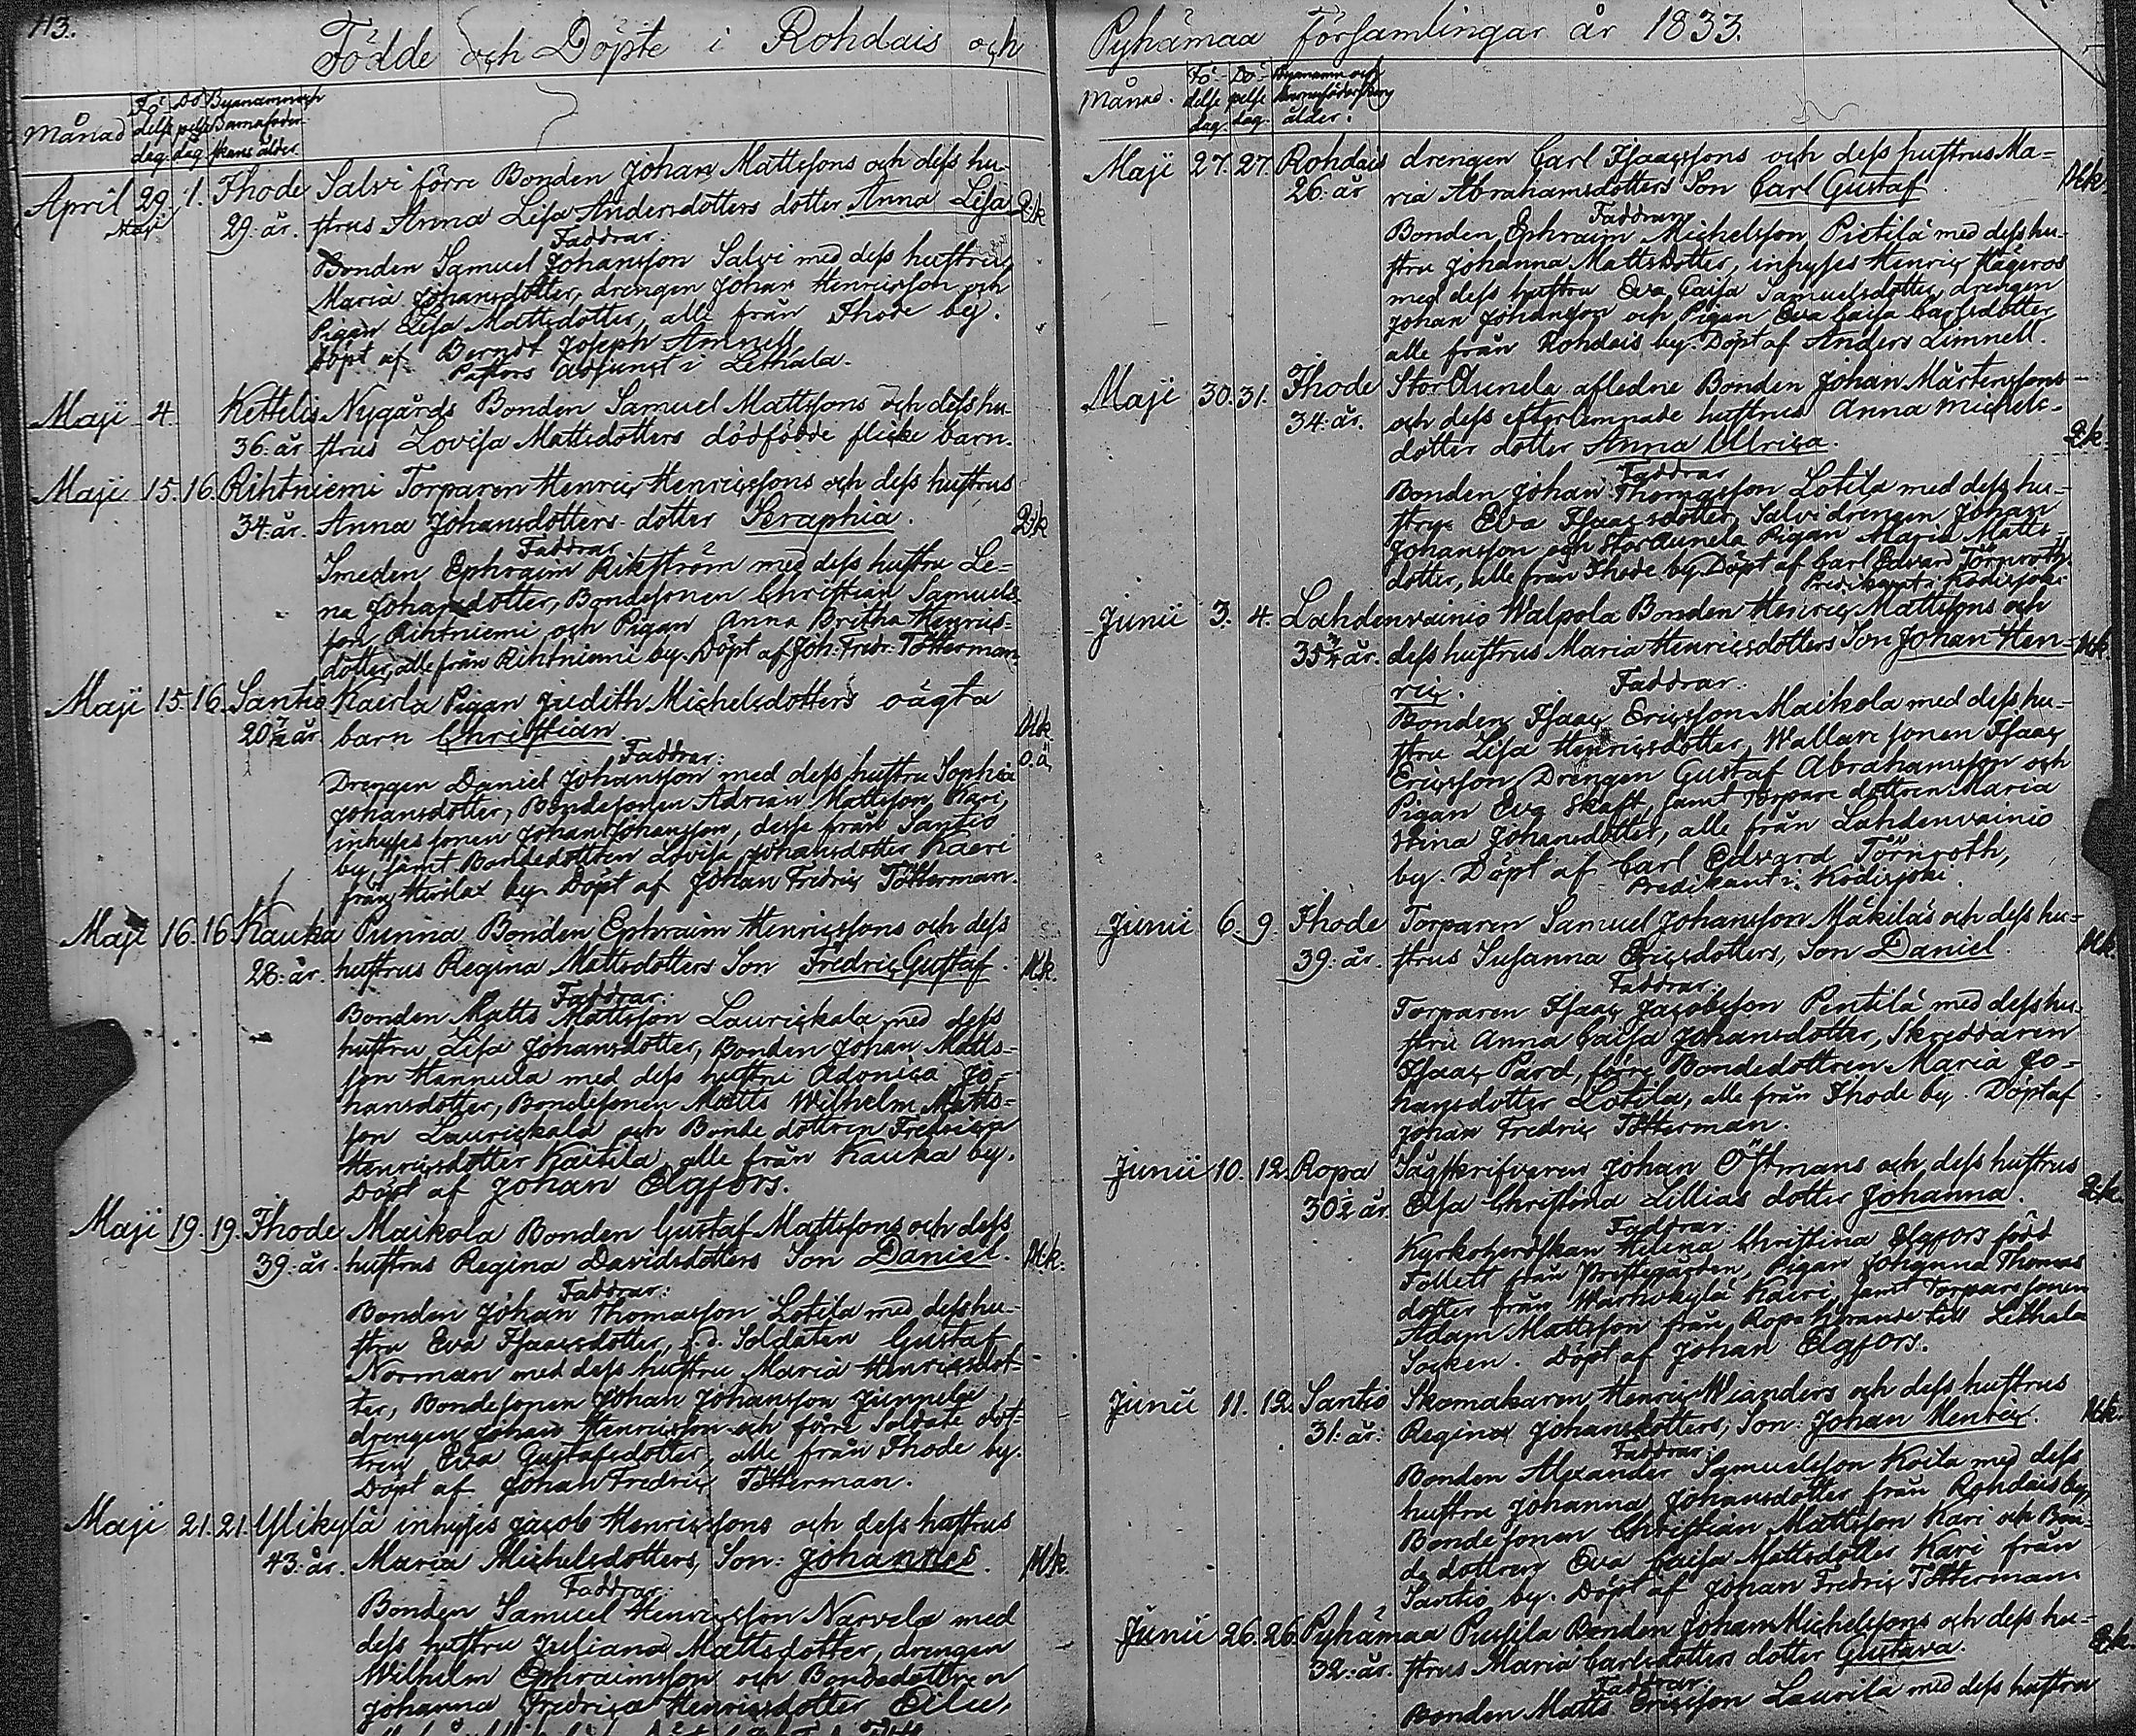 113.
Födde och Döpte i Rohdais och
Månad
Fö-
delse
dag.
Dö-
pelse
dag.
Byanamn och
Barnaföder-
skans ålder
April 29. 1. Ihode Salvi förre Bonden Johan Mattssons och dess hu-
Maji 29: år. strus Anna Lisa Andersdotters dotter Anna Lisa Q:k
Faddrar:
Bonden Samuel Johansson Salvi med dess hustru
Maria Johansdotter, drengen Johan Henricsson och
Pigan Lisa Mattsdotter, alle från Ihode by.
Döpt af Berndt Joseph Amnell
Pastors Adjunct i Lethala.
Maji 4. Kettelis Nygårds Bonden Samuel Mattssons och dess hu-
36: år strus Lovisa Mattsdotters dödfödde flicke barn.
Maji 15. 16. Rihtniemi Torparen Henric Henricssons och dess hustrus
34: år. Anna Johansdotters dotter Seraphia. Q:k
Faddrar
Smeden Ephraim Rikström med dess hustru Le-
na Johansdotter, Bondesonen Christian Samuels-
son Rihtniemi och Pigan Anna Britha Henrics-
dotter, alle från Rihtniemi by. Döpt af Joh: Fredr: Tötterman.
Maji 15. 16. Santio Kairla Pigan Judith Michelsdotters oägta
20 år barn Christian. M:k
Faddrar: o.ä
Drengen Daniel Johansson med dess hustru Sophia
Johansdotter, Bondesonen Adrian Mattsson Kari,
inhyses sonen Johan Johansson, desse från Santio
by, samt Bondedottren Lovisa Johansdotter Kaeri
från by. Döpt af Johan Fredric Tötterman.
Maji 16. 16 Kauka Punna Bonden Ephraim Henricssons och dess
28: år. hustrus Regina Mattsdotters Son Fredric Gustaf. M:k.
Faddrar:
Bonden Matts Mattsson Laurickala med dess
hustru Lisa Johansdotter, Bonden Johan Matts-
son Hannula med dess hustru Adonica Jo-
hansdotter, Bondesonen Matts Wilhelm Matts-
son Laurickala och Bonde dottren Fredrica
Henricsdotter Kaitila, alle från Kauka by.
Döpt af Johan Elgfors.
Maji 19. 19. Ihode Maikola Bonden Gustaf Mattssons och dess
39: år. hustrus Regina Davidsdotters Son Daniel. M:k.
Faddrar:
Bonden Johan Thomasson Lotila med dess hu-
stru Eva Isaacsdotter, f.d. Soldaten Gustaf
Norman med dess hustru Maria Henricsdot-
ter, Bondesonen Johan Johansson Junnela
drengen Johan Henricsson och förre Soldate dot-
tren Eva Gustafsdotter, alle från Ihode by.
Döpt af Johan Fredric Tötterman.
Maji 21. 21. Ylikylä inhyses Jacob Henricssons och dess hustrus
43: år. Maria Michelsdotters, Son: Johannes. M:k.
Faddrar:
Bonden Samuel Henricsson Narvela med
dess hustru Juliana Mattsdotter, drengen
Wilhelm Ephraimsson och Bondedottren
Johanna Fredrica Henricsdotter Eilu,
Pyhämaa Församlingar år 1833.
Månad.
Fö-
delse
dag.
Dö-
pelse
dag.
Byanamn och
ålder.
Maji 27. 27. Rohdais drengen Carl Isaacssons och dess hustrus Ma-
26: år ria Abrahamsdotters Son Carl Gustaf M:k.
Faddrar
Bonden Ephraim Michelsson Pietilä med dess hu-
stru Johanna Mattsdotter, inhyses Henric Hägeros
med dess hustru Eva Caisa Samuelsdotter, drengen
Johan Johansson och Pigan Eva Caisa Carlsdotter
alle från Rohdais by. Döpt af Anders Limnell.
Maji 30. 31. Ihode StorAunela aflidne Bonden Johan Mårtenssons
34: år. och dess efterlemnade hustrus Anna Michels-
dotter dotter Anna Ulrica. Q:k.
Faddrar
Bonden Johan Thomasson Lotila med dess hu-
stru Eva Isaacsdotter, Salvi drengen Johan
Johansson och StorAunela Pigan Maria Matts-
dotter, alle från Ihode by. Döpt af Carl Edvard Törnroth,
Predikant i Kodisjoki
Junii 3. 4. Lahdenvainio Walpola Bonden Henric Mattssons och
35 år. dess hustrus Maria Henricsdotters Son Johan Hen- M:k.
ric.
Faddrar:
Bonden Isaac Ericsson Maikola med dess hu-
stru Lisa Henricsdotter, Wallare sonen Isaac
Ericsson, Drengen Gustaf Abrahamsson och
Pigan Eva Skaft, samt Torpare dottren Maria
Stina Johansdotter, alle från Lahdenvainio
by. Döpt af Carl Edvard Törnroth,
Predikant i Kodisjoki.
Junii 6. 9. Ihode Torparen Samuel Johansson Mäkiläs och dess hu-
39: år. strus Susanna Ericsdotters, Son Daniel. M:k.
Faddrar:
Torparen Isaac Jacobsson Pentilä med dess hu-
stru Anna Caisa Johansdotter, Skreddaren
Isaac Pard, förre Bondedottren Maria Jo-
hansdotter Lotila, alle från Ihode by. Döpt af
Johan Fredric Tötterman.
Junii 10. 12. Ropa Sågskrifvaren Johan Östmans och dess hustrus
30½ år. Elsa Christina Lillias dotter Johanna. Q:k.
Faddrar:
Kyrkoherdskan Helena Christina Elgfors född
Follett från Prestegården, Pigan Johanna Thomas
dotter från Warhokylä Kaeri, samt Torparesonen
Adam Mattsson från Ropa hörande till Lethala
Socken. Döpt af Johan Elgfors.
Junii 11. 12. Santio Skomakaren Henric Wianders och dess hustrus
31: år: Regina Johansdotters, Son: Johan Henric. M:k.
Faddrar:
Bonden Alexander Samuelsson Koila med dess
hustru Johanna Johansdotter från Rohdais by,
Bondesonen Christian Mattsson Kari och Bon-
de dottren Eva Caisa Mattsdotter Kari från
Santio by. Döpt af Johan Fredric Tötterman
Junii 26. 26. Pyhämaa Pussila Bonden Johan Michelssons och dess hu-
32: år. strus Maria Carlsdotters dotter Gustava. Q:k.
Faddrar:
Bonden Matts Ericsson Laurila med dess hustru